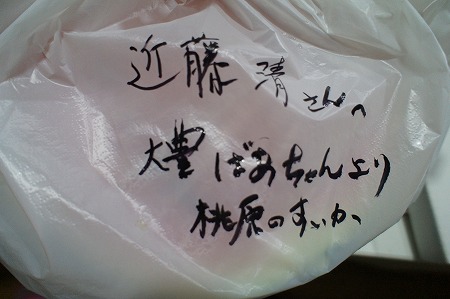 近藤清さんへ
大豊ばあちゃんより
桃原のすいか、